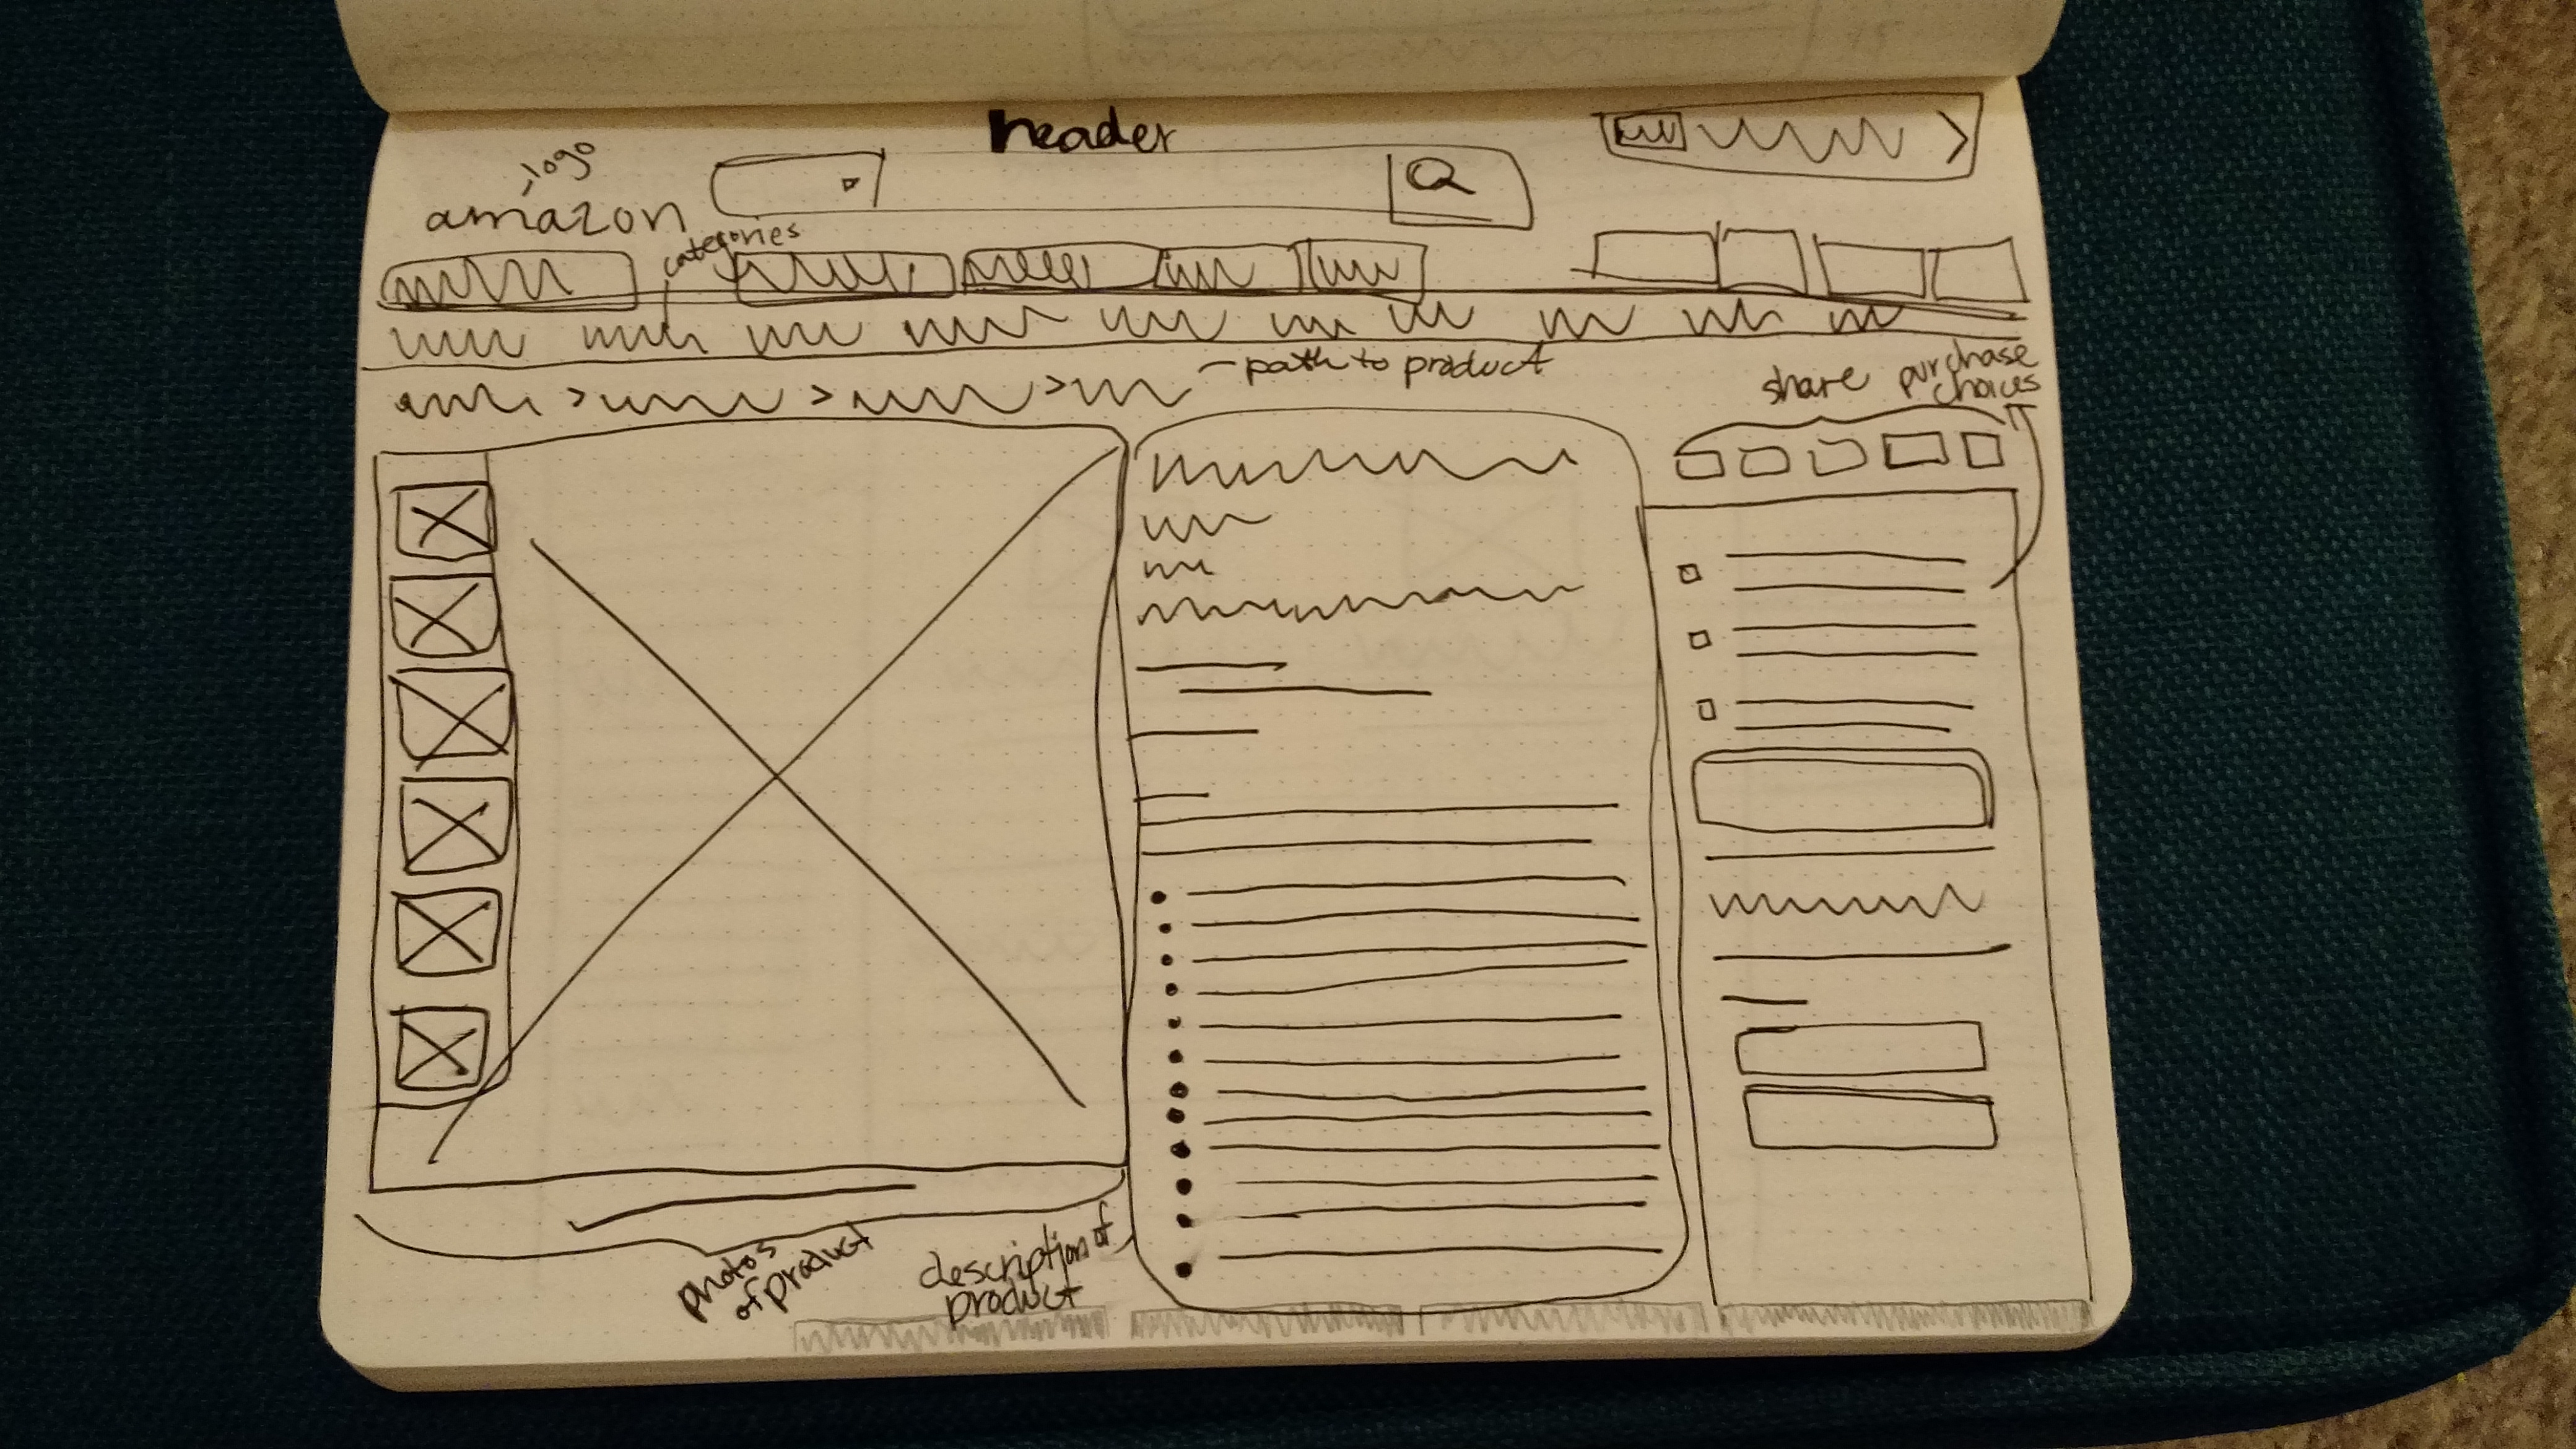 header
-logo
amazon
categories
- path to product
share
purchase
choices
photos
of product
description of
product